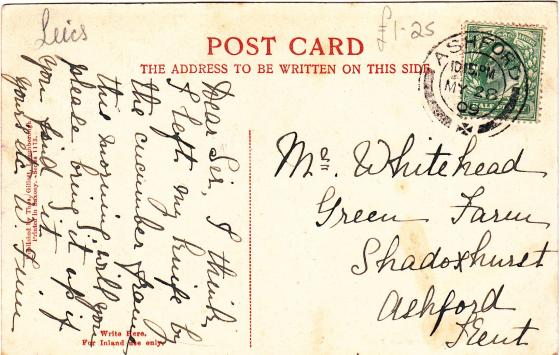 Leics
£1-25
POST CARD
THE ADDRESS TO BE WRITTEN ON THIS SIDE
ASHFORD
10.15 PM
MY 28
05
Dear Sir, I think
I left my knife by
the cucumber frame
this morning will you
please bring it up if
you find it
yours etc
Mr Whitehead
Green Farm
Shadoxhurst
Ashford
Kent
Printed in Saxony. Series 1173.
Write Here.
For Inland use only.